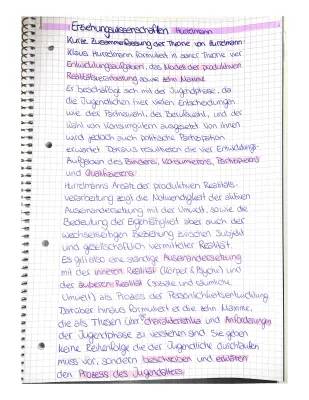 Erziehungswissenschaften Hurrelmann
Kurze Zusammenfassung der Theorie von Hurrelmann:
Klaus Hurrelmann formuliert in seiner Theorie vier
Entwicklungsaufgaben, das Modell der produktiven
Realitätsverarbeitung sowie zehn Maxime.
Er beschäftigt sich mit der Jugendphase, da
die Jugendlichen hier vielen Entscheidungen
wie der Partnerwahl, der Berufswahl, und der
Wahl von Konsumgütern ausgesetzt. Von ihnen
wird jedoch auch politische Partizipation
erwartet. Daraus resultieren die vier Entwicklungs-
Aufgaben des Bindens, Konsumierens, Partizipierens
und Qualifizierens.
Hurrelmanns Ansatz der produktiven Realitäts-
verarbeitung zeigt die Notwendigkeit der aktiven
Auseinandersetzung mit der Umwelt, sowie die
Bedeutung der Eigentätigkeit aber auch der
wechselseitigen Beziehung zwischen Subjekt
und gesellschaftlich vermittelter Realität.
Es gilt also eine ständige Auseinandersetzung
mit der inneren Realität (Körper & Psyche) und
der äußeren Realität (soziale und räumliche
Umwelt) als Prozess der Persönlichkeitsentwicklung.
Darüber hinaus formuliert er die zehn Maxime,
die als Thesen über charakteristika und Anforderungen
der Jugendphase zu verstehen sind. Sie geben
keine Reihenfolge die der Jugendliche durchlaufen
muss vor, sondern beschreiben und erklären
den Prozess des Jugendalters.